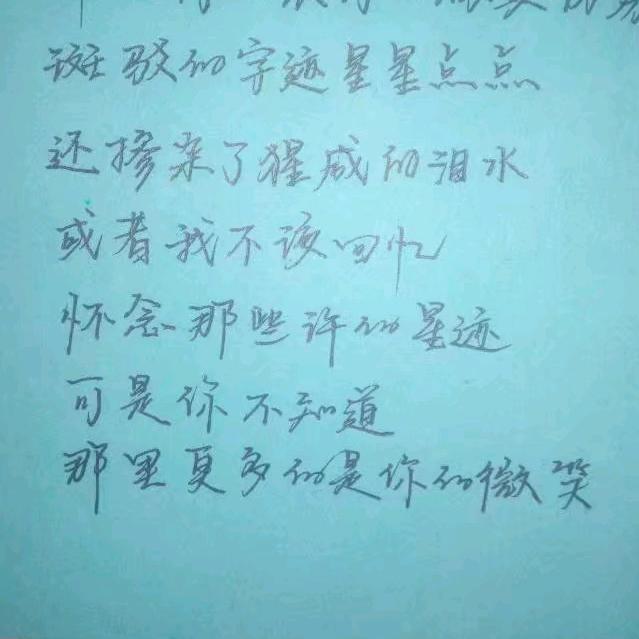 斑驳的字迹星星点点
还掺杂了猩咸的泪水
或者我不该回忆
怀念那些许的星迹
可是你不知道
那里更多的是你的微笑